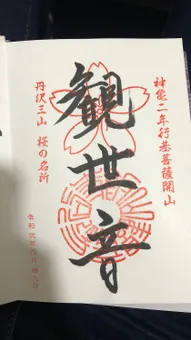 神亀二年行基菩薩開山
観世音
丹沢三山 桜の名所